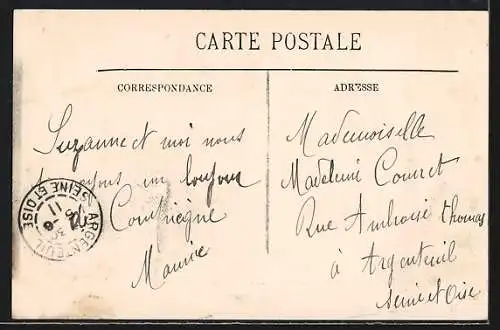 CARTE POSTALE
CORRESPONDANCE
Suzanne et moi nous
envoyons un bonjour
Compiègne
Maurice
ADRESSE
Mademoiselle
Madeleine Couvret
Rue Ambroise Thomas
à Argenteuil
Seine et Oise
ARGENTEUIL
SEINE ET OISE